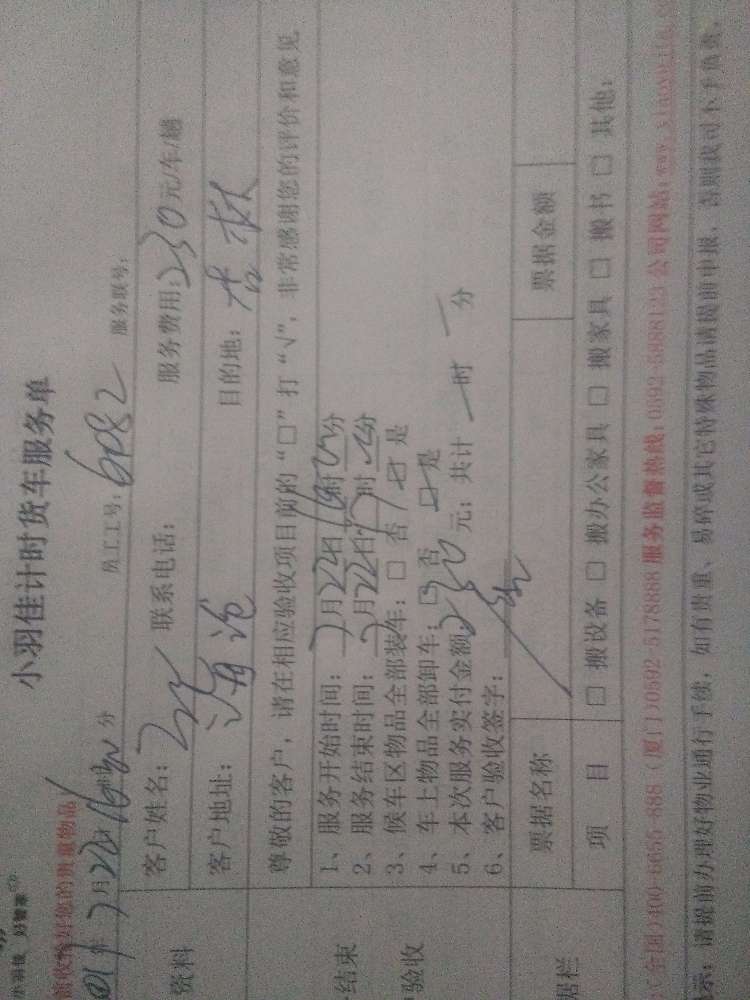 小羽佳 好管家
小羽佳计时货车服务单
前收好您的贵重物品
年7月22日16时 分 员工工号：6082 服务联号：
资料
客户姓名： 联系电话： 服务费用：230元/车/趟
客户地址： 海沧 目的地： 杏林
尊敬的客户，请在相应验收项目前的“□”打“√”，非常感谢您的评价和意见
结束
验收
1、服务开始时间：7月22日16时 分
2、服务结束时间：7月22日17时 分
3、候车区物品全部装车：□ 否 ☑ 是
4、车上物品全部卸车：□ 否 ☑ 是
5、本次服务实付金额230元；共计 一 时 一 分
6、客户验收签字：
据栏
票据名称 票据金额
项 目 □ 搬设备 □ 搬办公家具 □ 搬家具 □ 搬书 □ 其他：
(全国)400-6655-888 (厦门)0592-5178888 服务监督热线：0592-5988123 公司网站：www.xiaoyujia.co
示：请提前办理好物业通行手续，如有贵重、易碎或其它特殊物品请提前申报，否则我司不予负责。